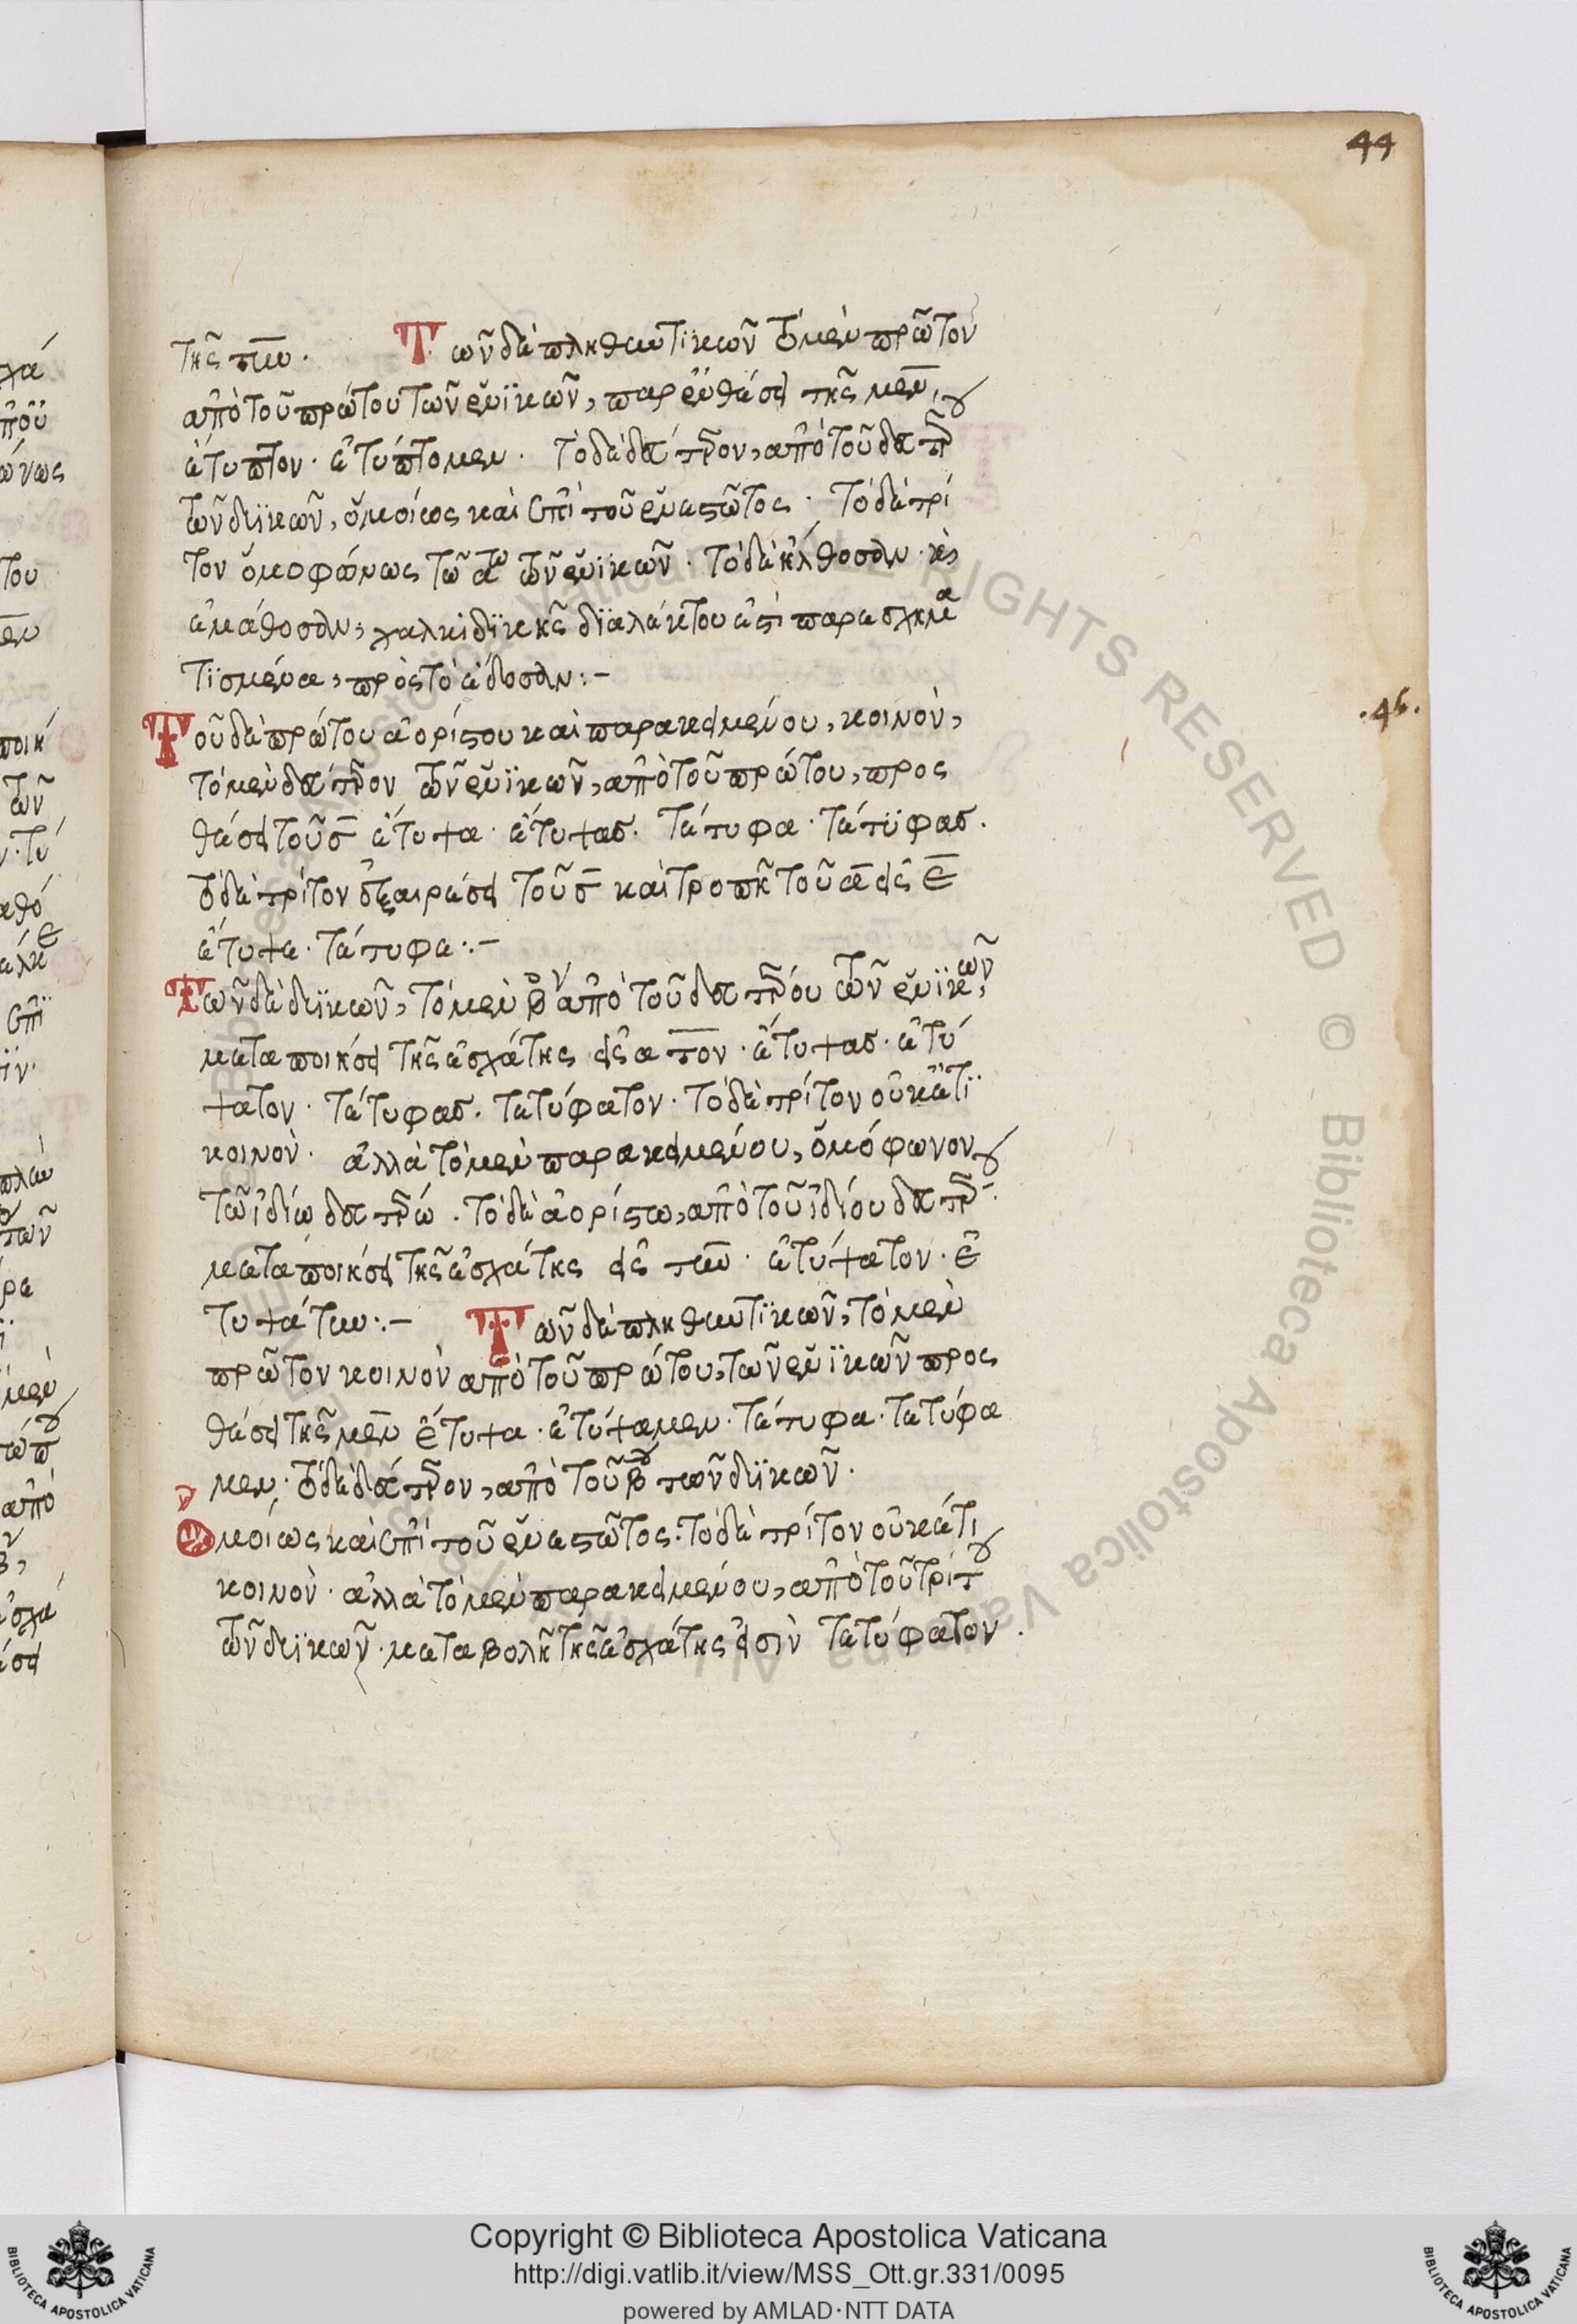 44
της την. Των δὲ πληθυντικῶν τὸ μὲν πρῶτον
ἀπὸ τοῦ πρώτου τῶν ἑνϊκῶν, παρενθέσει τῆς μεν,
ἔτυπτον· ἐτύπτομεν. Τὸ δὲ δεύτερον, ἀπὸ τοῦ δευτέρου
τῶν δυϊκῶν, ὁμοίως καὶ ἐπὶ τοῦ ἐνεστῶτος. Τὸ δὲ τρί
τον ὁμοφώνως τῶ αω τῶν ἑνϊκῶν. Τὸ δὲ ἤλθοσαν καὶ
ἐμάθοσαν, χαλκιδϊκῆς δϊαλέκτου ἐστὶ παρεσχημα
τϊσμένα, πρὸς τὸ ἔδοσαν:-
Τοῦ δὲ πρώτου ἀορίστου καὶ παρακειμένου, κοινὸν,
.45.
τὸ μὲν δεύτερον τῶν ἑνϊκῶν, ἀπὸ τοῦ πρώτου, προσ
θέσει τοῦ σ ἔτυψα· ἔτυψας. Τέτυφα· τέτϋφας.
Τὸ δὲ τρίτον ἐξαιρέσει τοῦ σ καὶ τροπῆ τοῦ α εἰς ε
ἔτυψε· τέτυφε:-
Τῶν δὲ δυϊκῶν, τὸ μὲν βον ἀπὸ τοῦ δευτέρου τῶν ἑνϊκῶν,
μεταποιήσει τῆς ἐσχάτης εἰς α τον· ἔτυψας· ἐτύ
ψατον· τέτυφας. τετύφατον. Τὸ δὲ τρίτον οὐκ ἔτϊ
κοινὸν. ἀλλὰ τὸ μὲν παρακειμένου, ὁμόφωνον
τῶ ἰδίω δευτέρω. Τὸ δὲ ἀορίστω, ἀπὸ τοῦ ἰδίου δευτέρου
μεταποιήσει τῆς ἐσχάτης εἰς την· ἐτύψατον· ἐ
τυψάτην:- Τῶν δὲ πληθυντϊκῶν, τὸ μὲν
πρῶτον κοινὸν ἀπὸ τοῦ πρώτου, τῶν ἑνϊκῶν προσ
θέσει τῆς μεν ἔτυψα· ἐτύψαμεν. Τέτυφα· τετύφα
μεν. Τὸ δὲ δεύτερον, ἀπὸ τοῦ βου τῶν δυϊκῶν.
Ὁμοίως καὶ ἐπὶ τοῦ ἐνεστῶτος. Τὸ δὲ τρίτον οὐκ ἔτι
κοινὸν· ἀλλὰ τὸ μὲν παρακειμένου, ἀπὸ τοῦ τρίτου
τῶν δυϊκῶν· μεταβολῆ τῆς ἐσχάτης εἰσὶν τετύφατον.
Copyright © Biblioteca Apostolica Vaticana
http://digi.vatlib.it/view/MSS_Ott.gr.331/0095
powered by AMLAD·NTT DATA
BIBLIOTECA APOSTOLICA VATICANA
BIBLIOTECA APOSTOLICA VATICANA